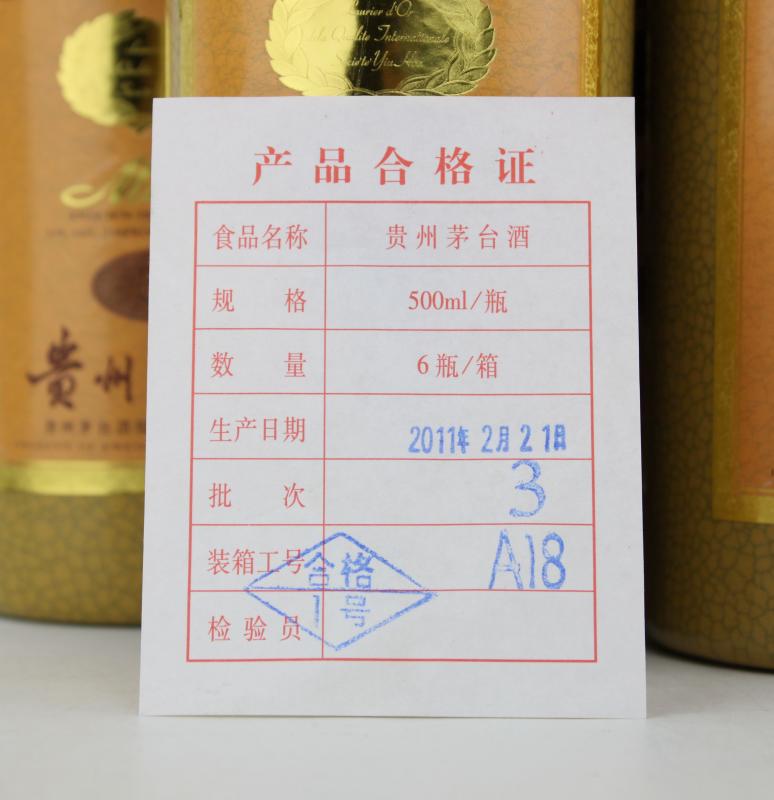 Laurier d'Or
de la Qualite Internationale
产品合格证
食品名称 贵州茅台酒
规格 500ml/瓶
数量 6瓶/箱
生产日期 2011年2月21日
批次 3
装箱工号 A18
检验员
合格
1号
貴州